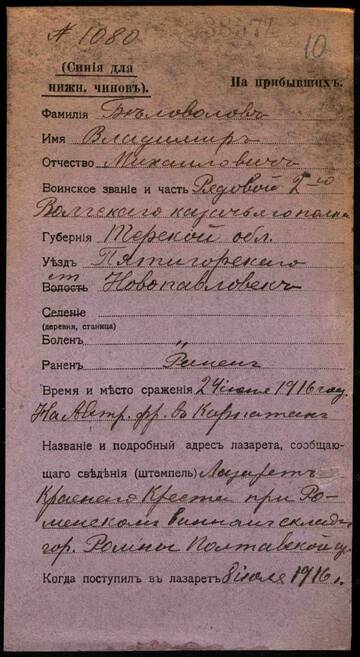 № 1080
10
(Синія для
нижн. чиновъ).
На прибывшихъ.
Фамилія Бѣловоловъ
Имя Владимиръ
Отчество Михаиловичъ
Воинское званіе и часть Рядовой 2-го
Волгскаго казачьяго полка
Губернія Терской обл.
Уѣздъ Пятигорскаго
ст
Волость Новопавловск
Селеніе
(деревня, станица)
Боленъ "
Раненъ Раненъ
Время и мѣсто сраженія 24 іюня 1916 год
На Австр. фр. в Карпатах
Названіе и подробный адресъ лазарета, сообщаю-
щаго свѣдѣнія (штемпель) Лазаретъ
Краснаго Креста при Ро-
менском винном складѣ
гор. Ромны Полтавской г.
Когда поступилъ въ лазаретъ 8 іюля 1916 г.